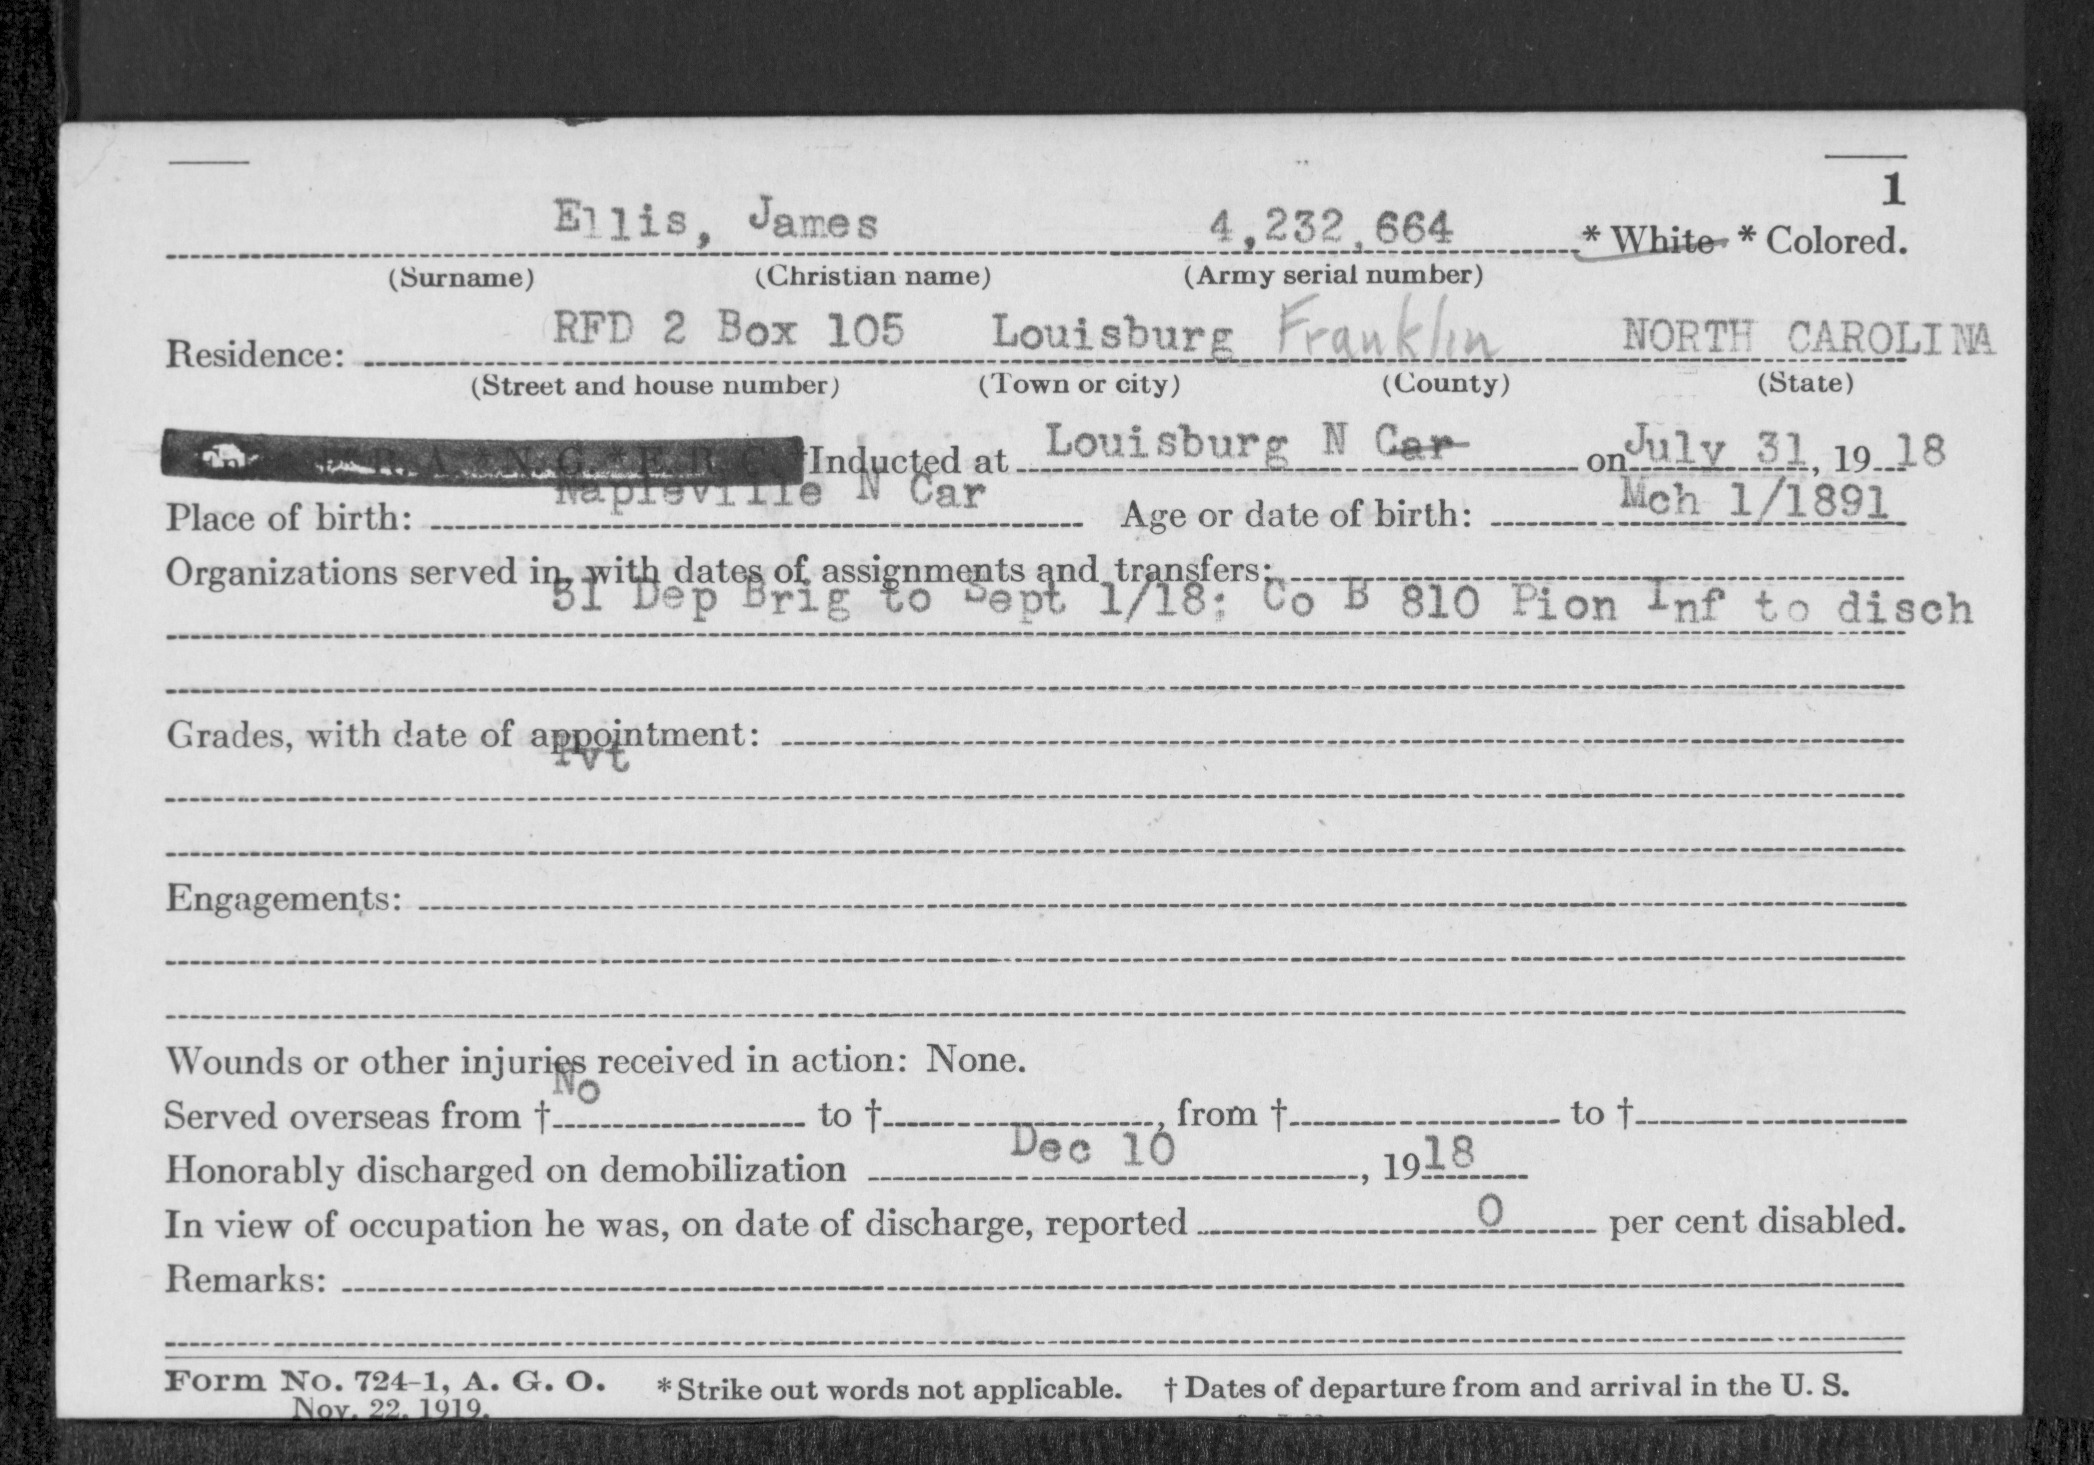 1
Ellis, James 4,232,664 * White * Colored.
(Surname) (Christian name) (Army serial number)
Residence: RFD 2 Box 105 Louisburg Franklin NORTH CAROLINA
(Street and house number) (Town or city) (County) (State)
R. A. N. G. * E. R. C. *Inducted at Louisburg N Car on July 31, 19 18
Place of birth: Mapleville N Car Age or date of birth: Mch 1/1891
Organizations served in, with dates of assignments and transfers:
51 Dep Brig to Sept 1/18; Co B 810 Pion Inf to disch
Grades, with date of appointment:
Pvt
Engagements:
Wounds or other injuries received in action: None.
Served overseas from † No to †, from † to †
Honorably discharged on demobilization Dec 10, 1918
In view of occupation he was, on date of discharge, reported 0 per cent disabled.
Remarks:
Form No. 724-1, A. G. O. * Strike out words not applicable. † Dates of departure from and arrival in the U. S.
Nov. 22, 1919.